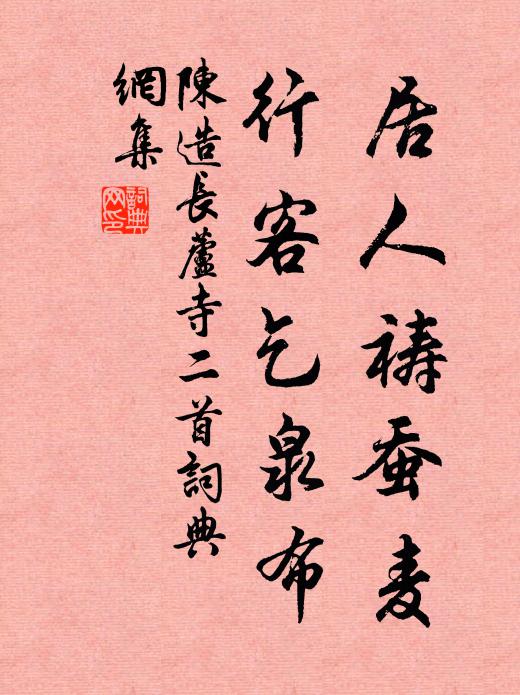 居人祷蚕麦
行客乞泉布
陳造長蘆寺二首詞典
網集
詞典
网印